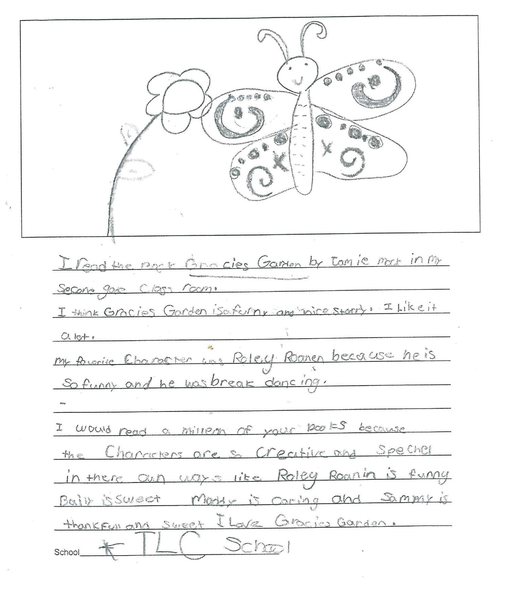 I read the Gracies Garden by Jamie in my
second class room.
I think Gracies Garden is a funny and nice story. I like it
a lot.
my favorite Character was Roley Roanen because he is
so funny and he was break dancing.
-
I would read a of your books because
the Characters are so Creative and Spechel
in there own ways like Roley Roanin is funny
is sweet Maddy is caring and Sammy is
thankfull and sweet I Love Gracies Garden.
School TLC School